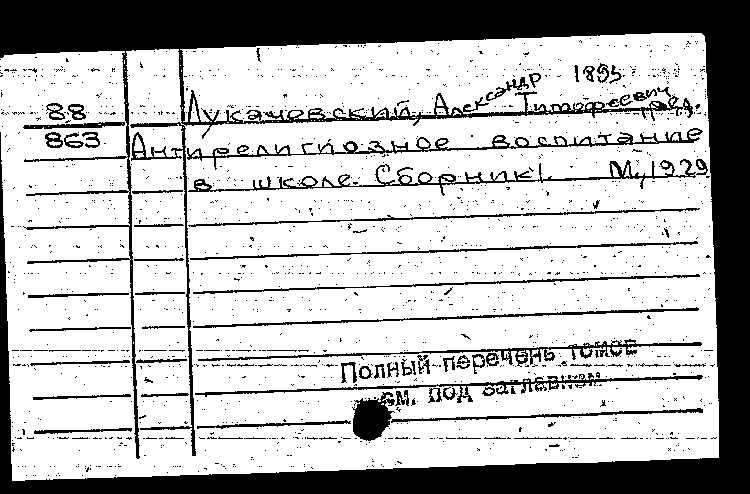 1895
88 Лукачевский, Александр Тимофеевич, ред.
863 Антирелигиозное воспитание
в школе. Сборник I. М., 1929
Полный перечень томов
см. под заглавием